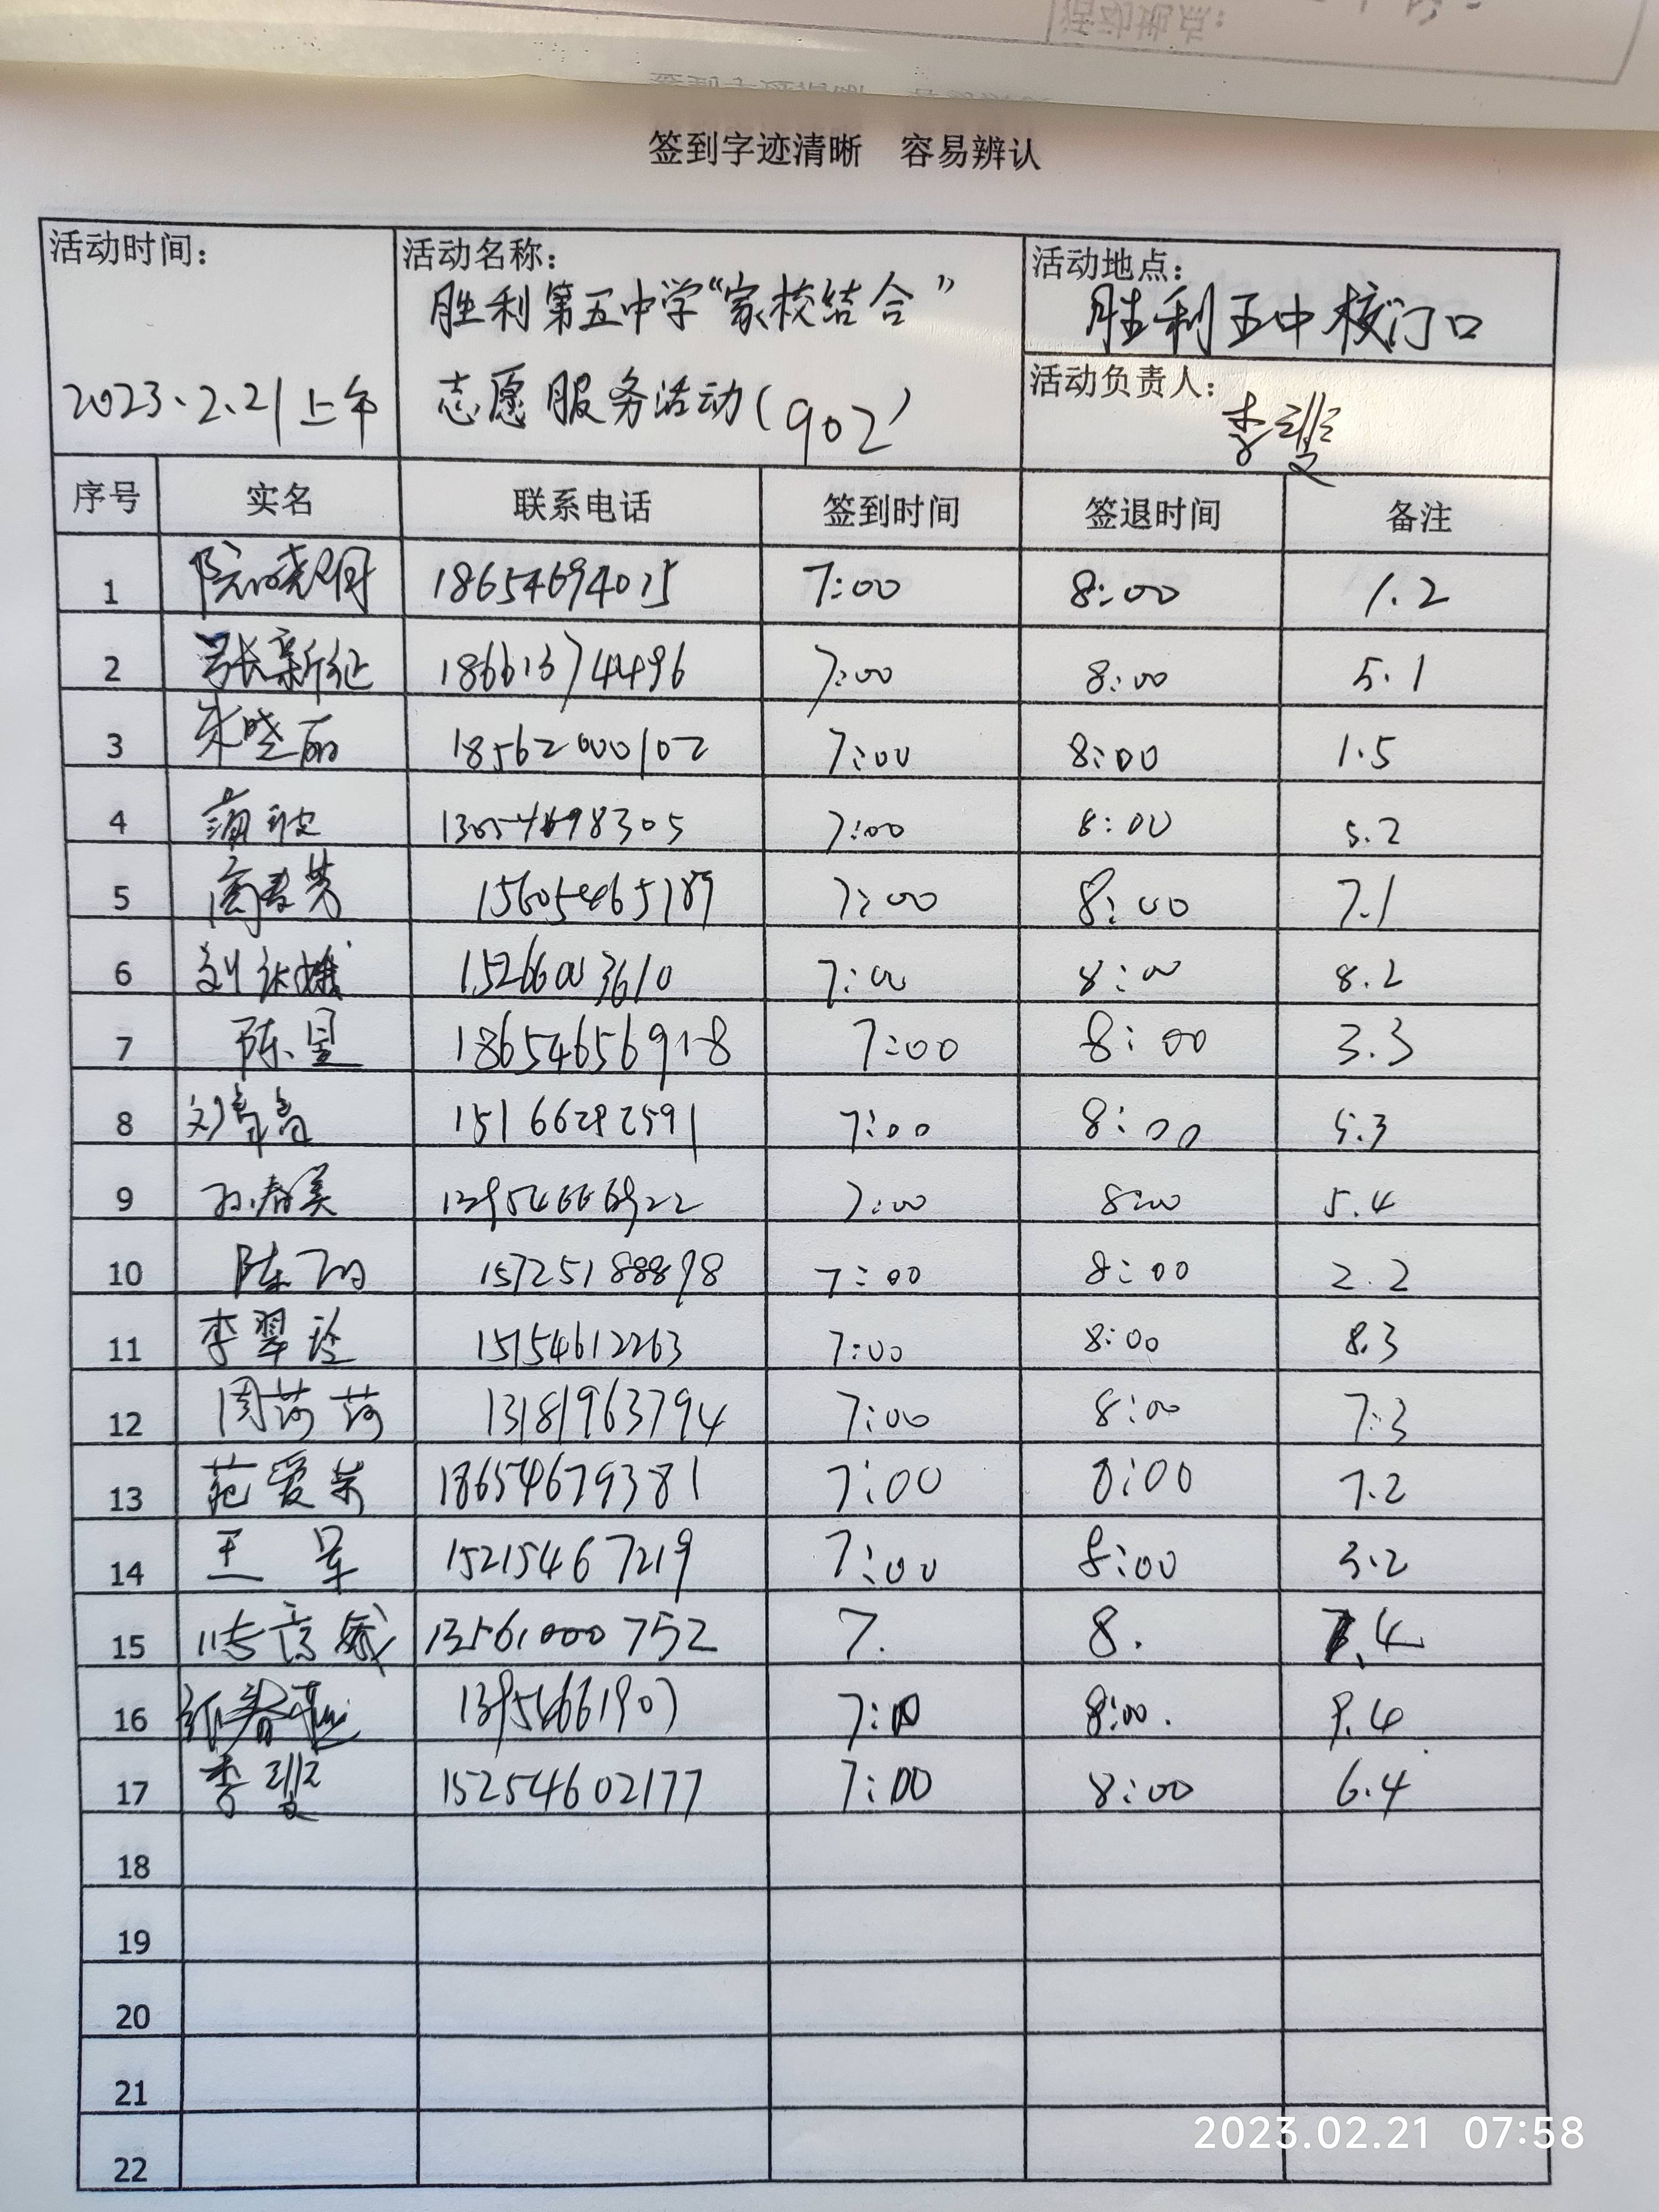 签到字迹清晰 容易辨认
活动时间：
2023.2.21上午
活动名称：
胜利第五中学“家校结合”
志愿服务活动（902）
活动地点：
胜利五中校门口
活动负责人：
李翠
序号 实名 联系电话 签到时间 签退时间 备注
1 18654694015 7:00 8:00 1.2
2 张新征 18661374496 7:00 8:00 5.1
3 朱晓丽 18562000102 7:00 8:00 1.5
4 7:00 8:00 5.2
5 15605465189 7:00 8:00 7.1
6 15266003610 7:00 8:00 8.2
7 陈昱 18654656918 7:00 8:00 3.3
8 刘青青 15166282591 7:00 8:00 5.3
9 孙春美 13954666922 7:00 8:00 5.4
10 15725188898 7:00 8:00 2.2
11 李翠玲 15154612263 7:00 8:00 8.3
12 周荷荷 13181963794 7:00 8:00 7.3
13 范爱荣 18654679381 7:00 8:00 7.2
14 王军 15215467219 7:00 8:00 3.2
15 13561000752 7. 8. 7.4
16 13954661907 7:00 8:00.
17 李翠 15254602177 7:00 8:00 6.4
18
19
20
21
22
2023.02.21 07:58